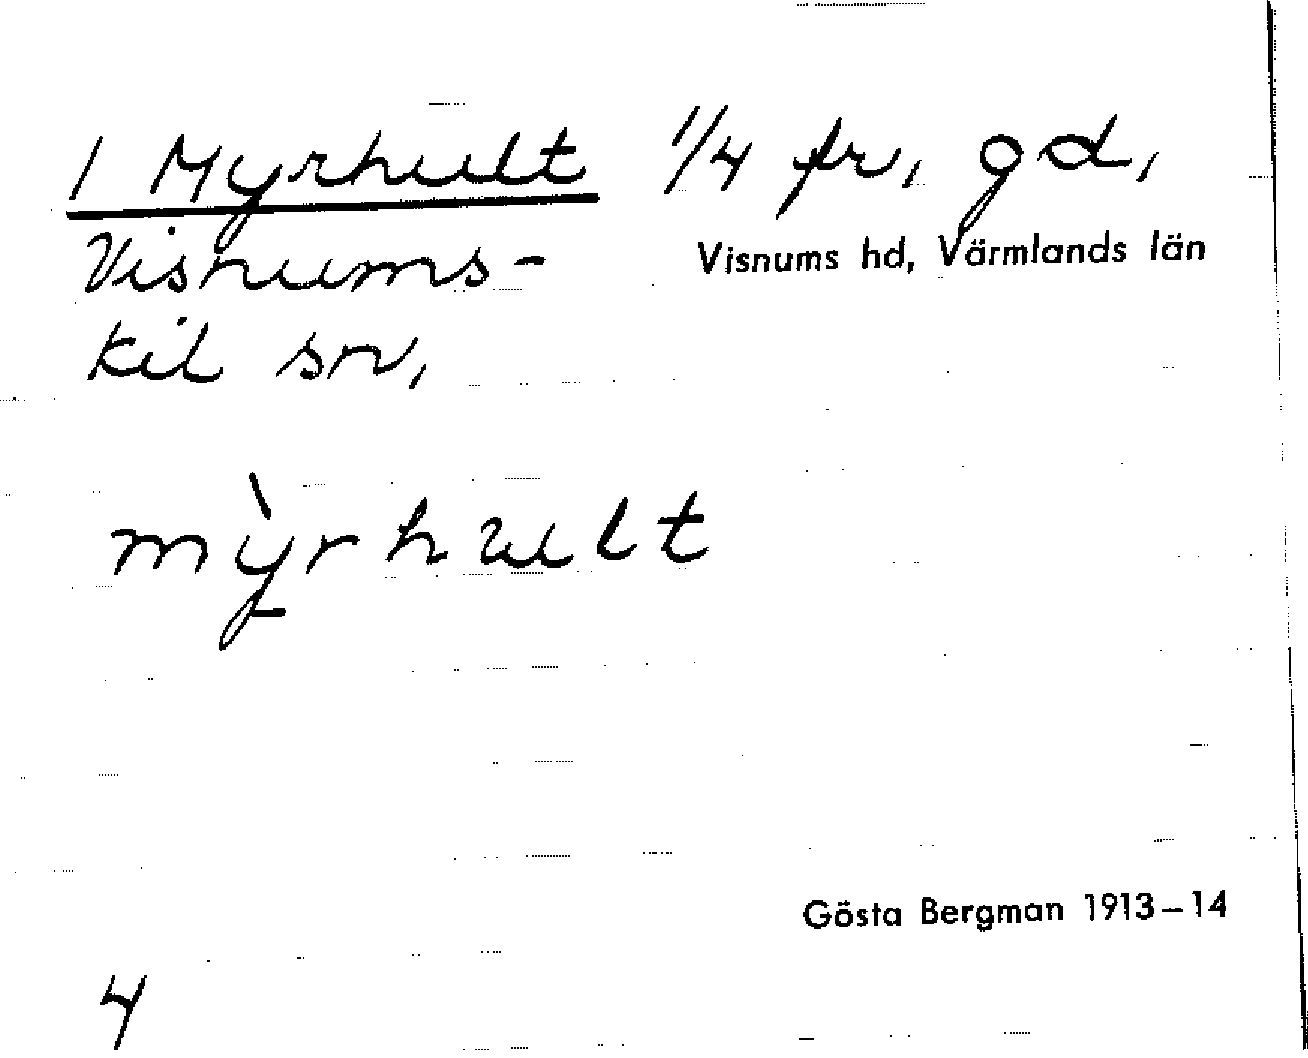 1 Myrhult 1/4 fr, gd,
Visnums-
kil sn,
Visnums hd, Värmlands län
mỳrhult
Gösta Bergman 1913–14
4